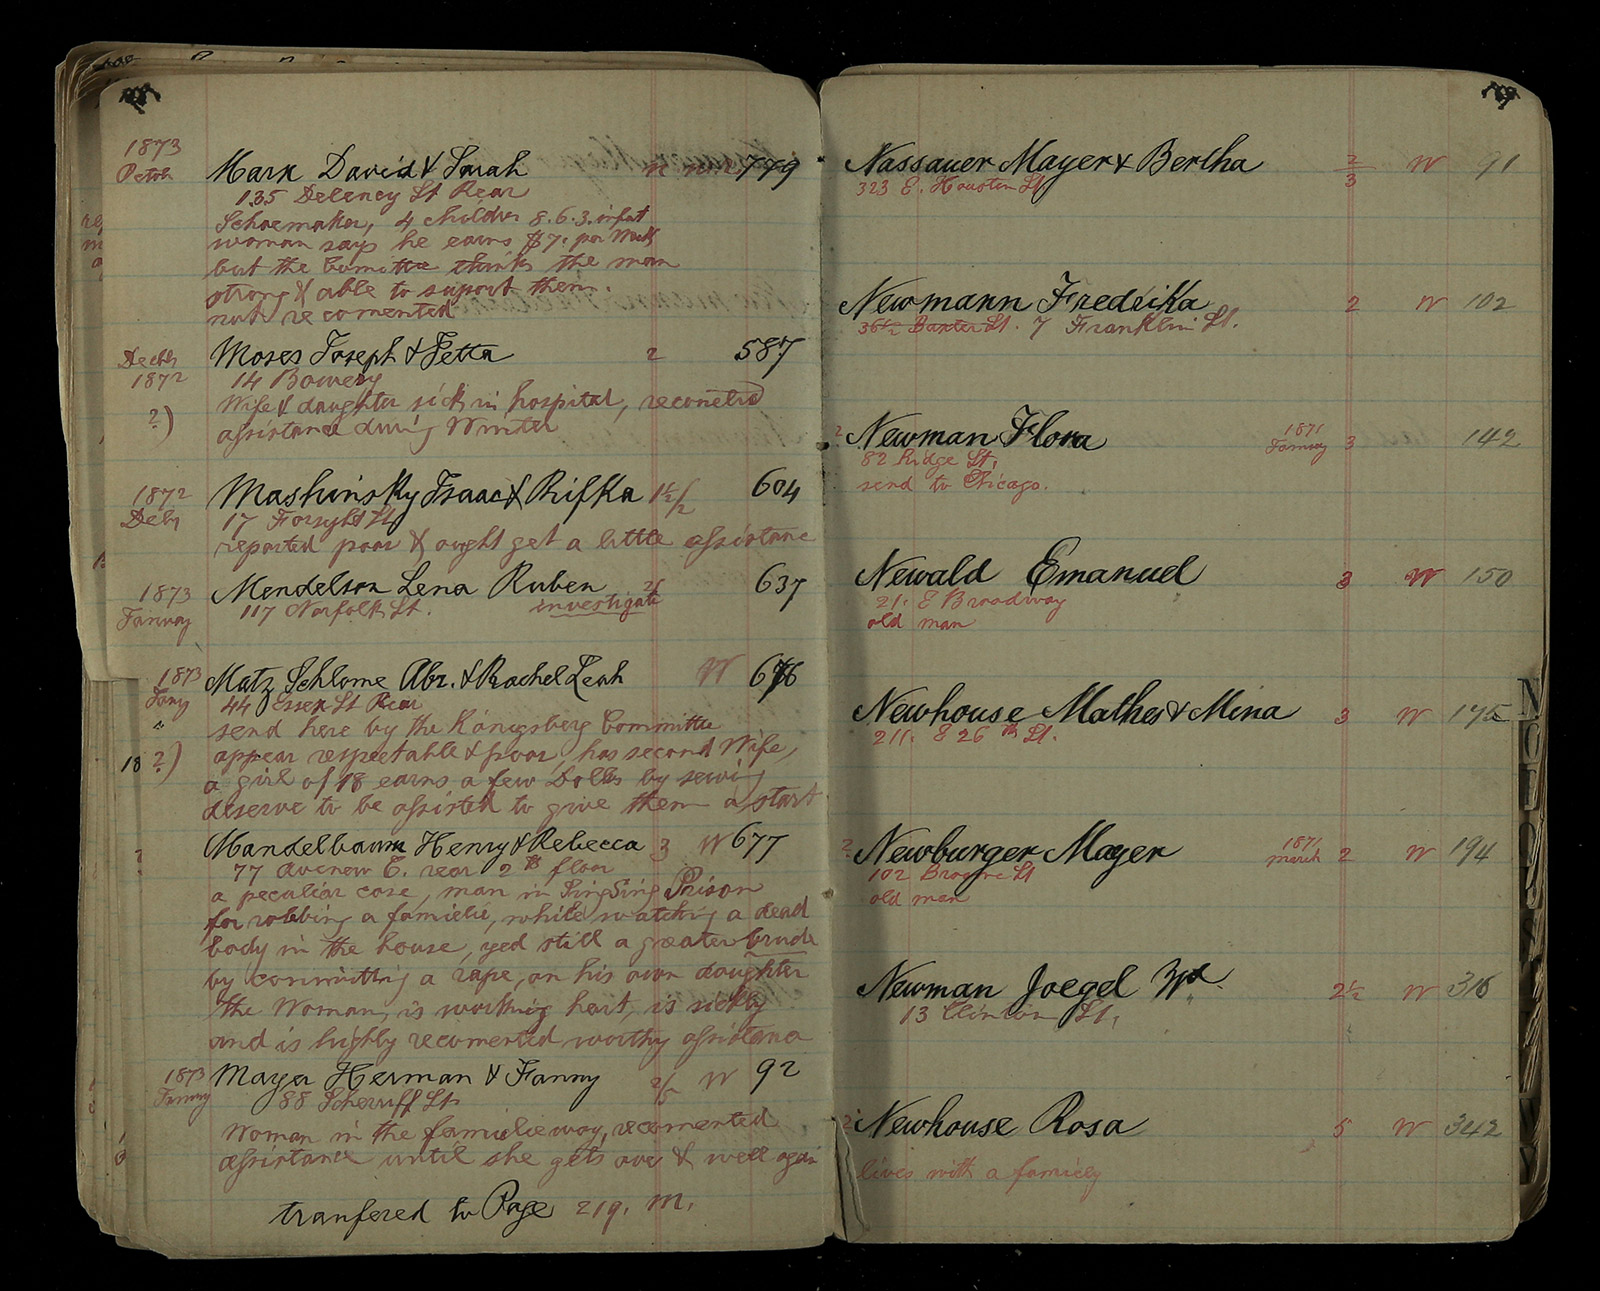 1873
Mark David & Sarah 779
135 Delency St Rear
Schoemaker, 4 childer 8.6.3. infat
woman says he earns $7. per Week
but the Comittee thinks the man
strong & able to suport them.
not recomented
Decbr
1872
Moses Joseph & Jetta 2 587
14 Bowery
2)
Wife & daughter sick in hospital,
assistance during Winter
1872
Debr
Mashinsky Isaac & Rifka 1½/2 604
17 Forsyht St
reported poor & ought get a little assistanc
1873
Janway
Mendelson Lena Ruben 637
117 Norfolk St. investigate
1873
Jany
Matz Schlome Abr. & Rachel Leah W 676
44 Essex St Rear
send here by the Königsberg Committee
18 2)
appear respectable & poor, has second Wife,
a girl of 18 earns a few Dolls by sewing
deserve to be assisted to give them a start
Mandelbaum Henry & Rebecca 3 W 677
77 Avenew C. rear 2th floor
a peculiar case, man in Sing Sing Prison
for robbing a familie, while watching a dead
body in the house, yed still a greater
by committing a rape, on his own daughter
the Woman, is worthing heart, is sickly
and is highly recomented worthy assistance
1873
Janway
Mayer Herman & Fanny 2/5 W 92
88 Scherriff St
Woman in the familie way, recomented
assistance until she gets over & well again
tranfered to Page 219. M.
Nassauer Mayer & Bertha 2/3 W 91
323 E. Houston St
Newmann Fredeika 2 W 102
36½ Baxter St. 7 Franklin St.
2 Newman Flora 1871 Janway 3 142
82 Ridge St,
send to Chicago.
Newald Emanuel 3 W 150
21. E Broadway
old man
Newhouse Mathes & Mina 3 W 175
211. E 26th St.
2 Newburger Mayer 1871 March 2 W 194
102 Broome St
old man
Newman Joegel Wd 2½ W 316
13 Clinton St,
2 Newhouse Rosa 5 W 342
lives with a family
N
O